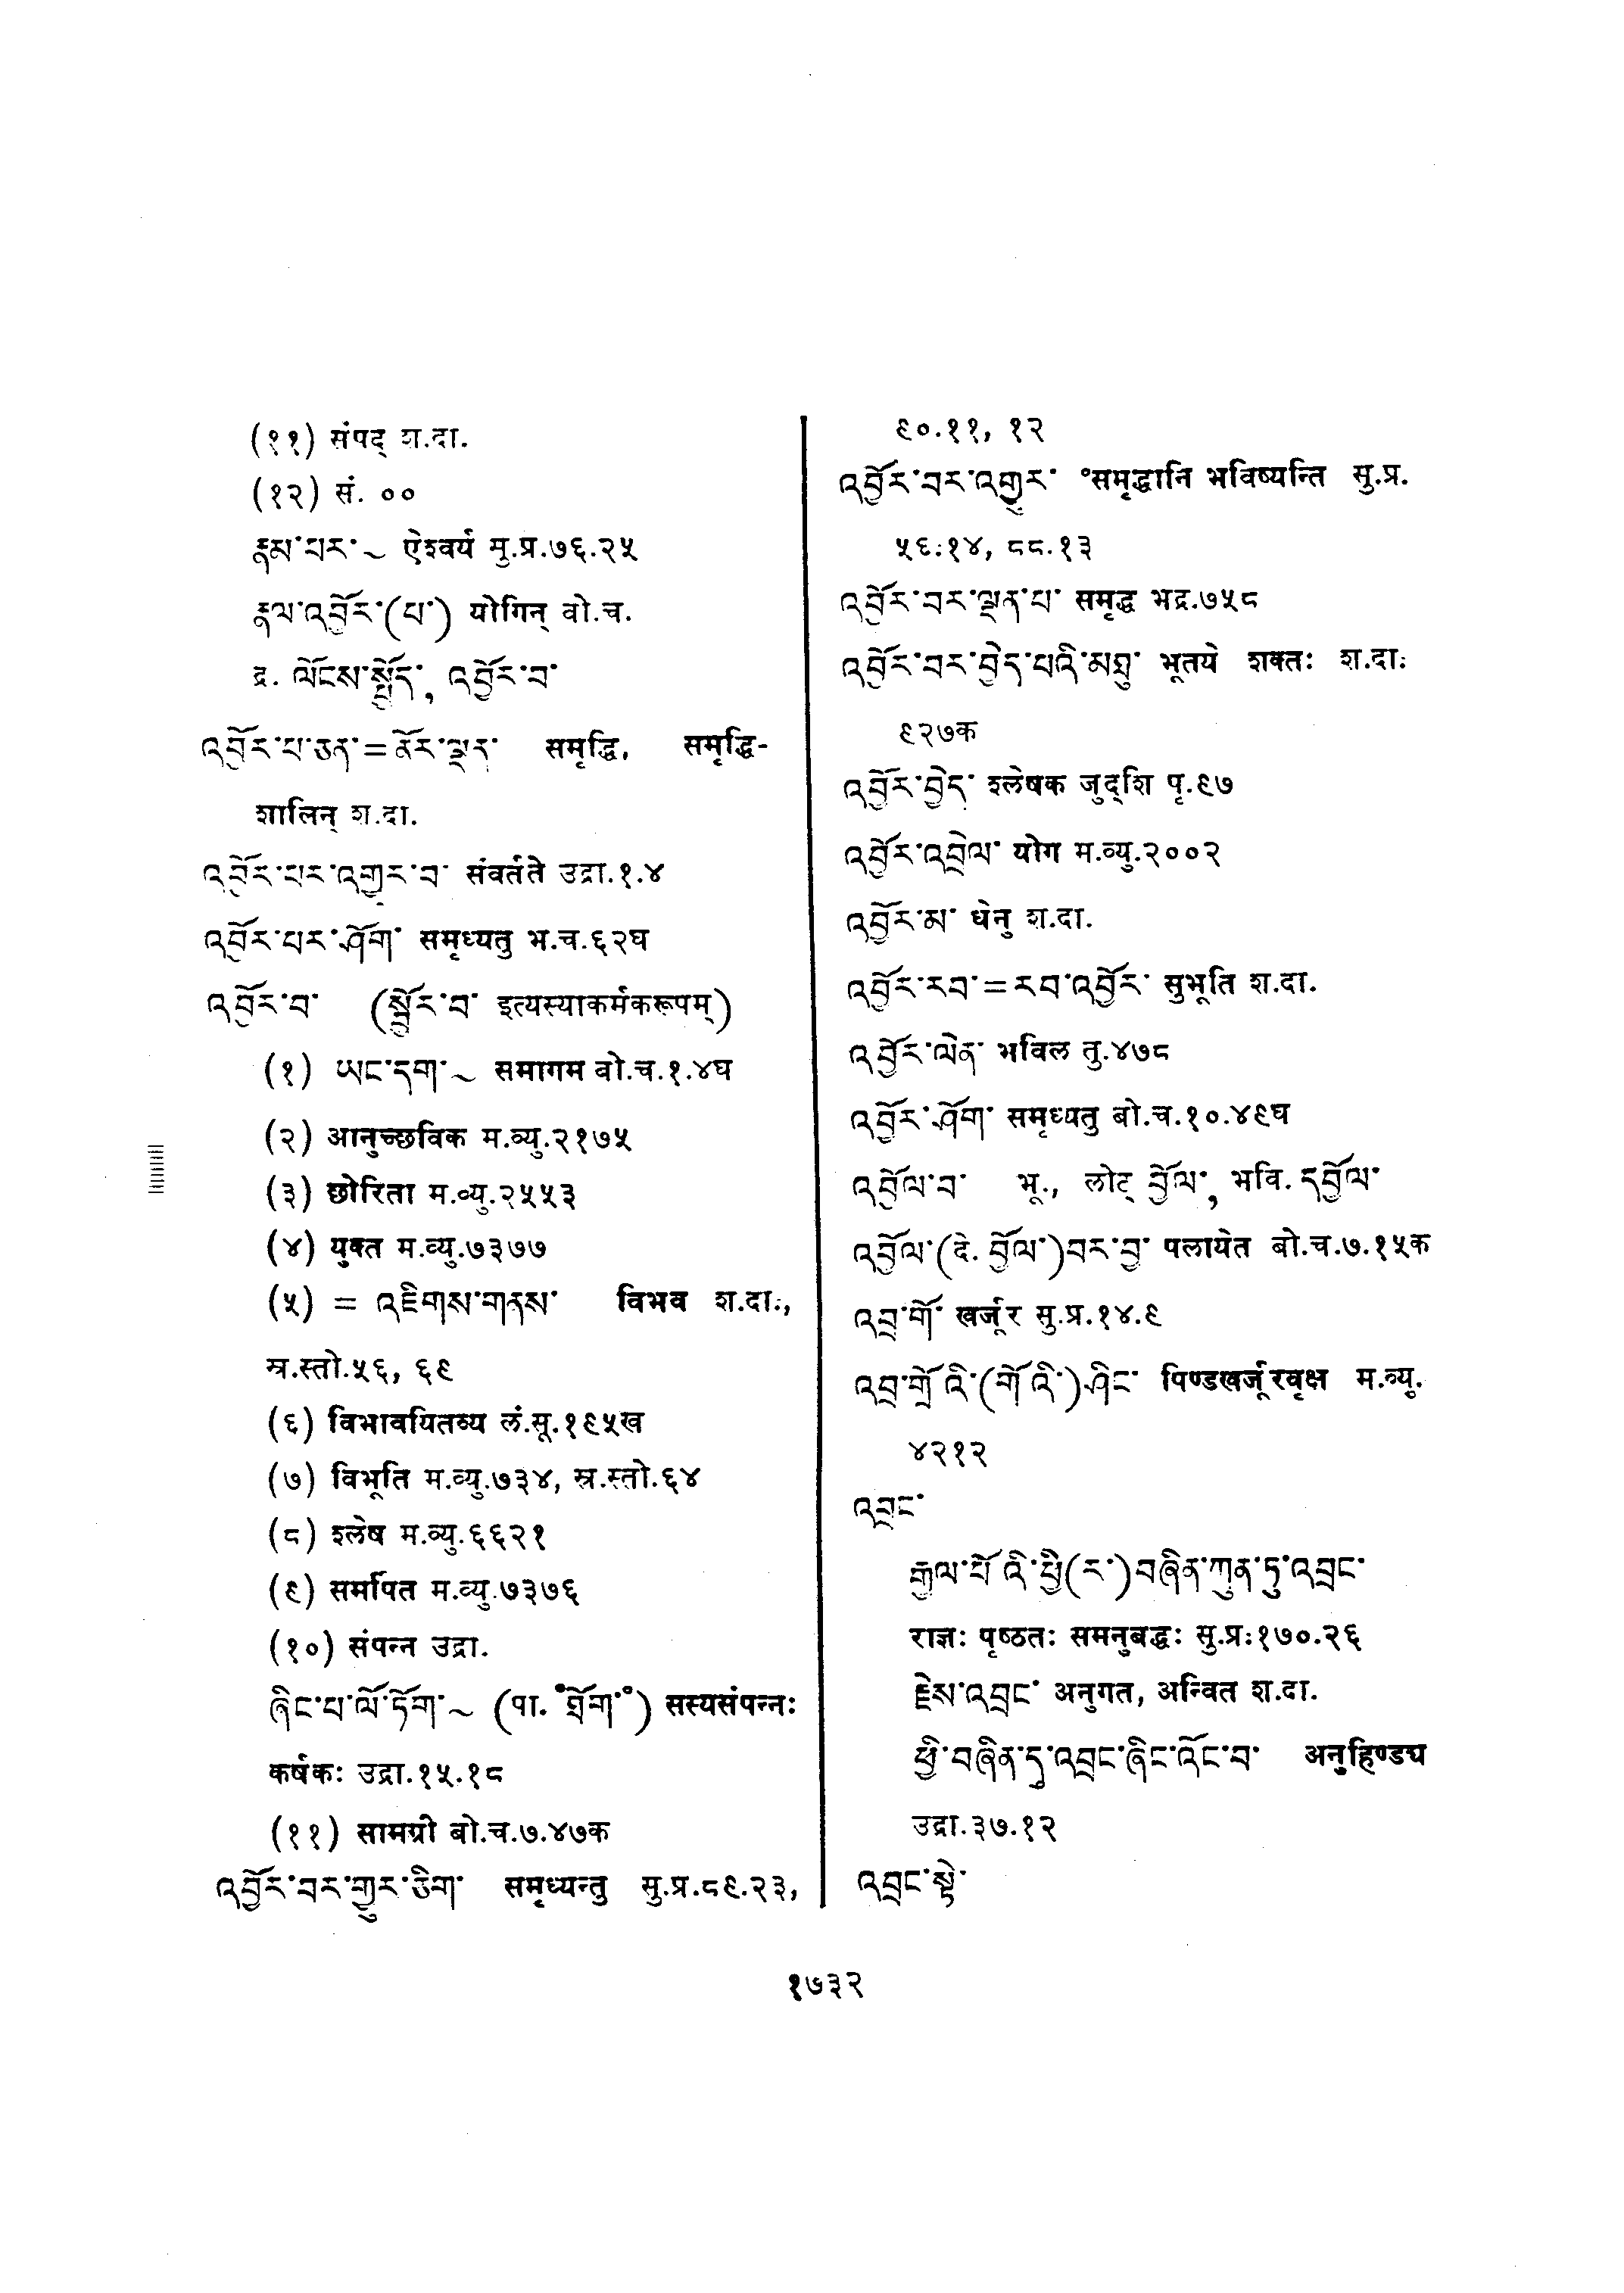 (११) संपद् श.दा.
(१२) सं. ००
རྣམ་པར་~ ऐश्वर्य सु.प्र.७६.२५
རྣལ་འབྱོར་(པ་) योगिन् बो.च.
द्र. ལོངས་སྤྱོད་, འབྱོར་བ་
འབྱོར་པ་ཅན་=ནོར་ལྡན་ समृद्धि, समृद्धि-
शालिन् श.दा.
འབྱོར་པར་འགྱུར་བ་ संवर्तते उद्रा.१.४
འབྱོར་པར་ཤོག་ समृध्यतु भ.च.६२घ
འབྱོར་བ་ (སྦྱོར་བ་ इत्यस्याकर्मकरूपम्)
(१) ཡང་དག་~ समागम बो.च.१.४घ
(२) आनुच्छविक म.व्यु.२१७५
(३) छोरिता म.व्यु.२५५३
(४) युक्त म.व्यु.७३७७
(५) = འཇིགས་གནས་ विभव श.दा.,
स्र.स्तो.५६, ६९
(६) विभावयितव्य लं.सू.१९५ख
(७) विभूति म.व्यु.७३४, स्र.स्तो.६४
(८) श्लेष म.व्यु.६६२१
(९) समर्पित म.व्यु.७३७६
(१०) संपन्न उद्रा.
ཞིང་པ་ལོ་ཏོག་~ (पा. °ཐོག་°) सस्यसंपन्नः
कर्षकः उद्रा.१५.१८
(११) सामग्री बो.च.७.४७क
འབྱོར་བར་གྱུར་ཅིག་ समृध्यन्तु सु.प्र.८९.२३,
९०.११, १२
འབྱོར་བར་འགྱུར་ °समृद्धानि भविष्यन्ति सु.प्र.
५६.१४, ८८.१३
འབྱོར་བར་ལྡན་པ་ समृद्ध भद्र.७५८
འབྱོར་བར་བྱེད་པའི་མཐུ་ भूतये शक्तः श.दा.
९२७क
འབྱོར་བྱེད་ श्लेषक जुद्शि पृ.९७
འབྱོར་འབྲེལ་ योग म.व्यु.२००२
འབྱོར་མ་ धेनु श.दा.
འབྱོར་རབ་=རབ་འབྱོར་ सुभूति श.दा.
འབྱོར་ལེན་ भविल तु.४७८
འབྱོར་ཤོག་ समृध्यतु बो.च.१०.४९घ
འབྱོལ་བ་ भू., लोट् བྱོལ་, भवि. དབྱོལ་
འབྱོལ་(दे. བྱོལ་)བར་བྱ་ पलायेत बो.च.७.१५क
འབྲ་གོ་ खर्जूर सु.प्र.१४.९
འབྲ་གྲོའི་(གོའི་)ཤིང་ पिण्डखर्जूरवृक्ष म.व्यु.
४२१२
འབྲང་
རྒྱལ་པོའི་ཕྱི(ར་)བཞིན་ཀུན་ཏུ་འབྲང་
राज्ञः पृष्ठतः समनुबद्धः सु.प्र.१७०.२६
རྗེས་འབྲང་ अनुगत, अन्वित श.दा.
ཕྱི་བཞིན་དུ་འབྲང་ཞིང་འོང་བ་ अनुहिण्ड्य
उद्रा.३७.१२
འབྲང་སྟེ་
१७३२